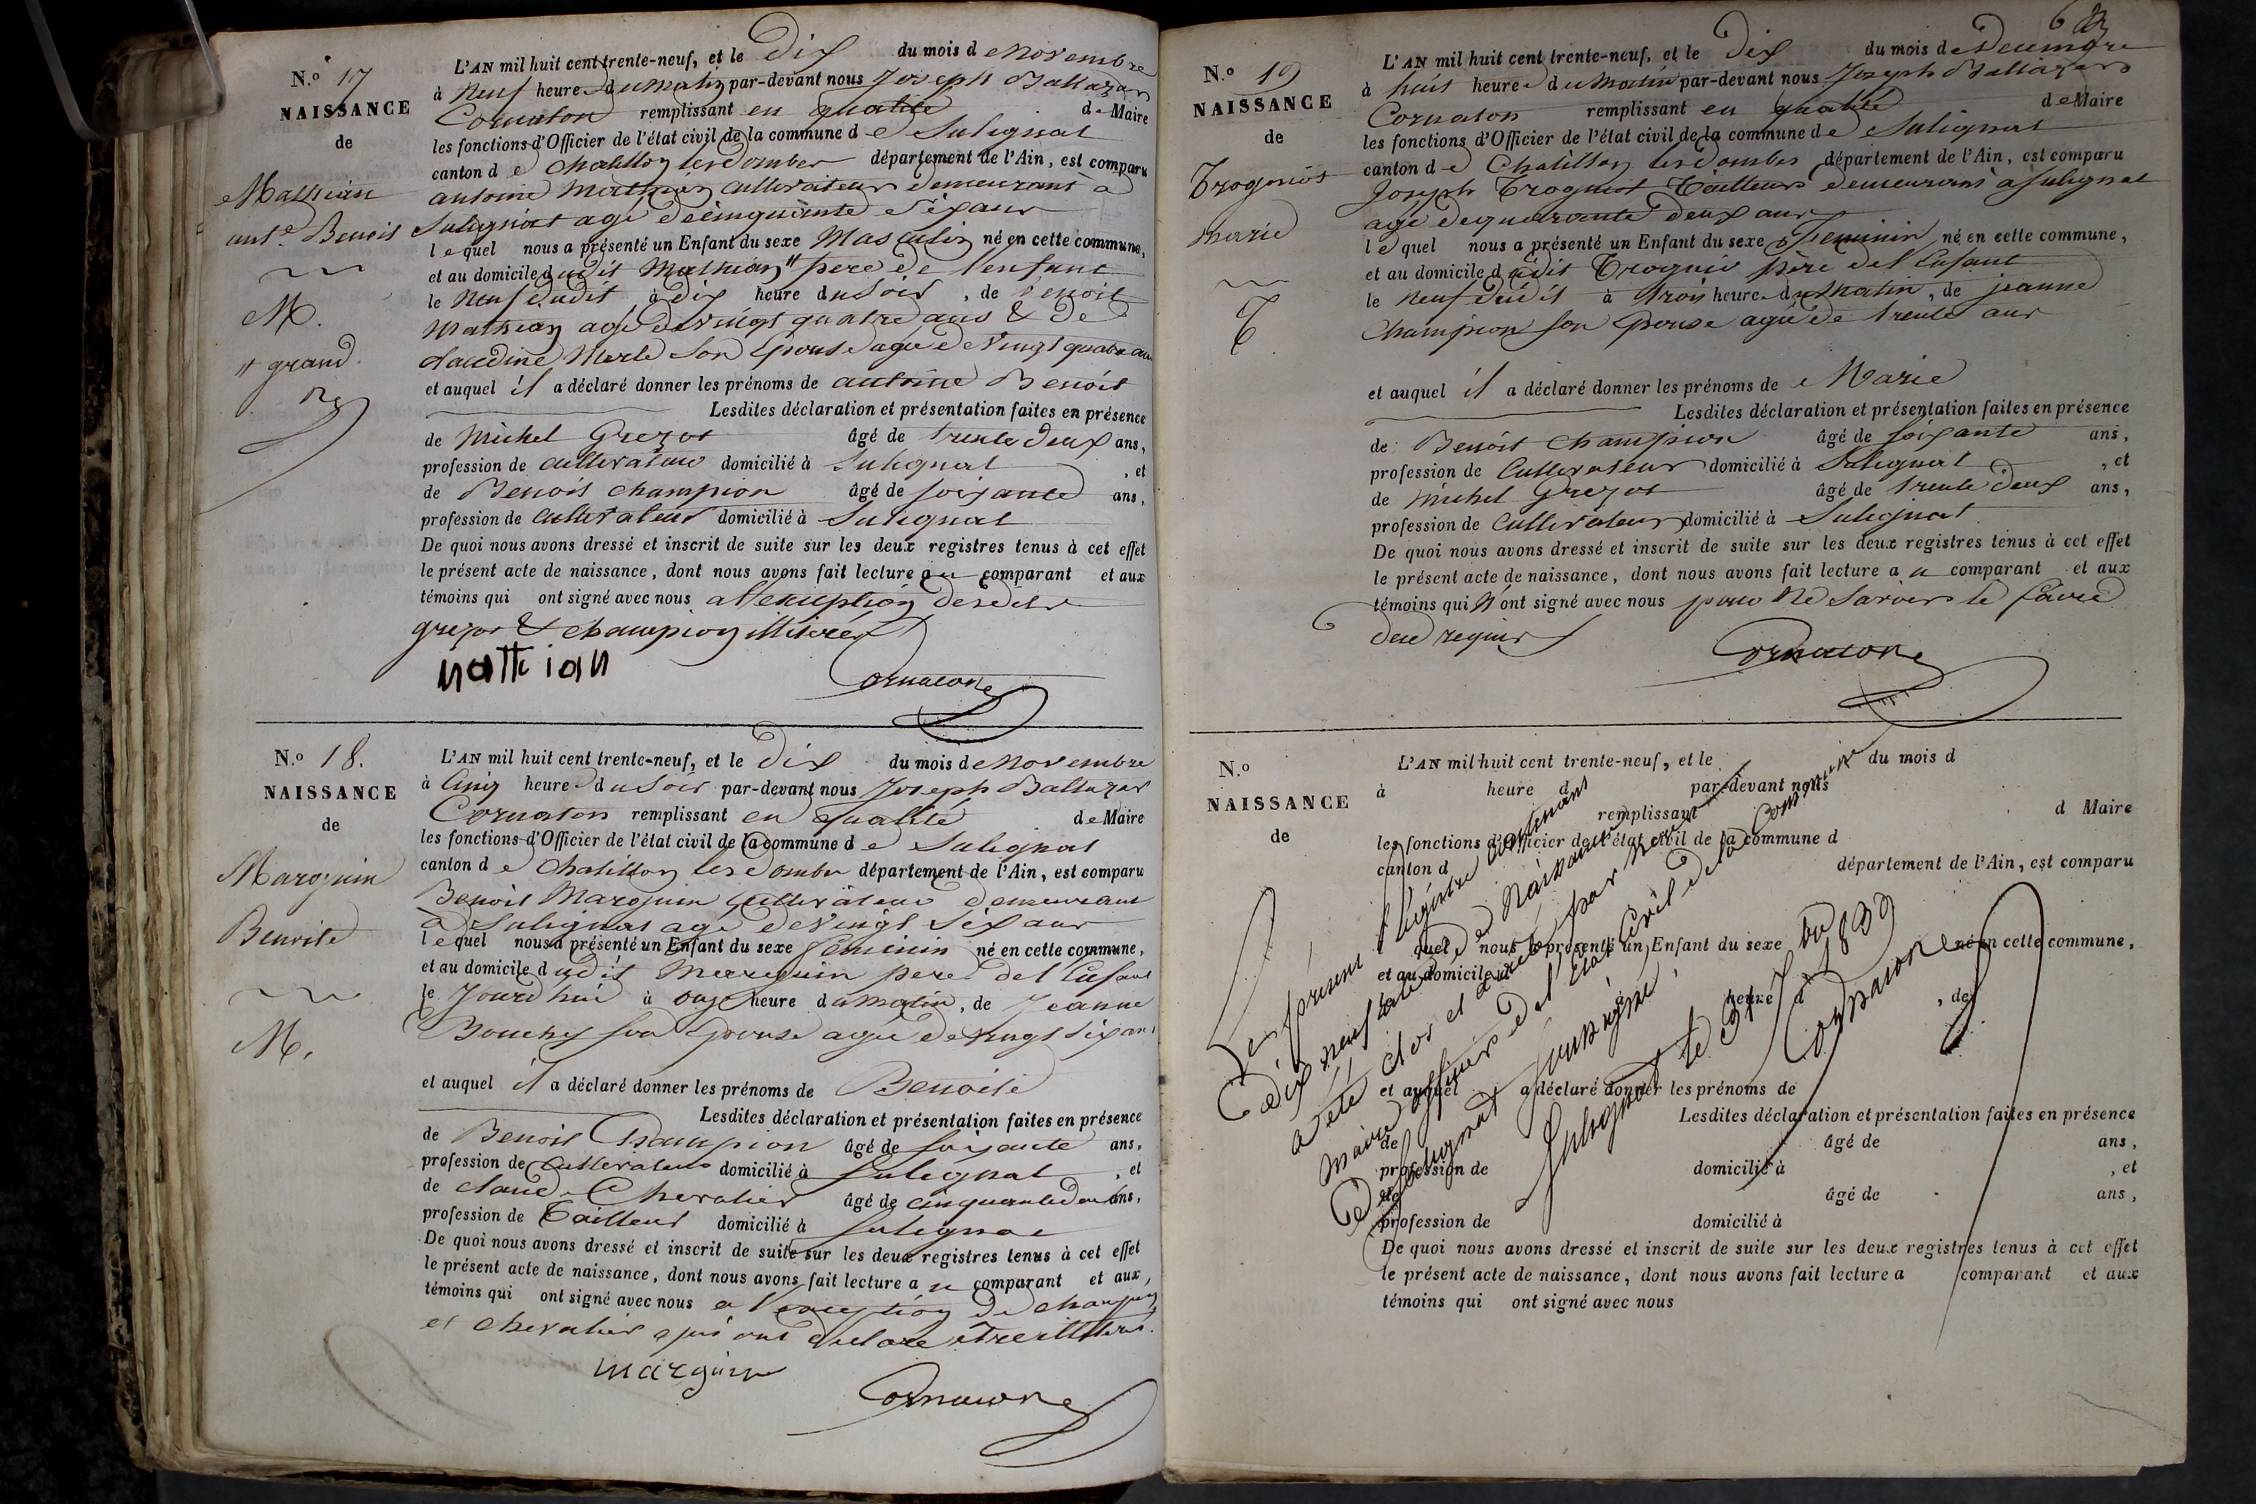 N.º 17
NAISSANCE
de
Mathian
ant.e Benoit
M.
" grand
L'AN mil huit cent trente-neuf, et le dix du mois de Novembre
à neuf heure du matin par-devant nous Joseph Baltazar
Cornaton remplissant en qualité de Maire
les fonctions d'Officier de l'état civil de la commune de Sulignat
canton de Chatillon les dombes département de l'Ain, est comparu
antoine Mathian cultivateur demeurant à
Sulignat agé de cinquante six ans
lequel nous a présenté un Enfant du sexe Masculin né en cette commune,
et au domicile dudit Mathian " pere de l'enfant
le neuf dudit à dix heure du soir, de Benoit
Mathian agé de vingt quatre ans & de
claudine Merle son épouse agée de vingt quatre ans
et auquel il a déclaré donner les prénoms de antoine Benoit
Lesdites déclaration et présentation faites en présence
de Michel Grezot âgé de trente deux ans,
profession de cultivateur domicilié à Sulignat, et
de Benoit champion âgé de soixante ans,
profession de cultivateur domicilié à Sulignat
De quoi nous avons dressé et inscrit de suite sur les deux registres tenus à cet effet
le présent acte de naissance, dont nous avons fait lecture au comparant et aux
témoins qui ont signé avec nous a l'exception desdits
grezot & champion illitérés
mathian
Cornaton
N.º 18.
NAISSANCE
de
Marguin
Benoite
M.
L'AN mil huit cent trente-neuf, et le dix du mois de Novembre
à cinq heure du soir par-devant nous Joseph Baltazar
Cornaton remplissant en qualité de Maire
les fonctions d'Officier de l'état civil de la commune de Sulignat
canton de Chatillon les dombes département de l'Ain, est comparu
Benoit Marguin cultivateur demeurant
à Sulignat agé de vingt six ans
lequel nous a présenté un Enfant du sexe féminin né en cette commune,
et au domicile dudit Marguin pere de l'Enfant
le jourd'hui à onze heure du matin, de Jeanne
Bouchy son épouse agée de vingt six ans
et auquel il a déclaré donner les prénoms de Benoite
Lesdites déclaration et présentation faites en présence
de Benoit Champion âgé de soixante ans,
profession de cultivateur domicilié à Sulignat, et
de claude Chevalier âgé de cinquante deux ans,
profession de Tailleur domicilié à Sulignat
De quoi nous avons dressé et inscrit de suite sur les deux registres tenus à cet effet
le présent acte de naissance, dont nous avons fait lecture au comparant et aux
témoins qui ont signé avec nous a l'exception de champion
et chevalier qui ont déclaré être illitérés.
marguin
Cornaton
N.º 19
NAISSANCE
de
Trogniot
marie
T
L'AN mil huit cent trente-neuf, et le dix du mois de Decembre
à huit heure du Matin par-devant nous Joseph Baltazard
Cornaton remplissant en qualité de Maire
les fonctions d'Officier de l'état civil de la commune de Sulignat
canton de Chatillon les dombes département de l'Ain, est comparu
Joseph Trogniot Tailleur demeurant a Sulignat
agé de quarante deux ans
lequel nous a présenté un Enfant du sexe Feminin né en cette commune,
et au domicile dudit Trogniot père de l'Enfant
le neuf dudit à trois heure du Matin, de jeanne
Champion son épouse agée de trente ans
et auquel il a déclaré donner les prénoms de Marie
Lesdites déclaration et présentation faites en présence
de Benoit champion âgé de soixante ans,
profession de Cultivateur domicilié à Sulignat, et
de michel Grezot âgé de trente deux ans,
profession de cultivateur domicilié à Sulignat
De quoi nous avons dressé et inscrit de suite sur les deux registres tenus à cet effet
le présent acte de naissance, dont nous avons fait lecture au comparant et aux
témoins qui n'ont signé avec nous pour ne savoir le faire
de ce requis
Cornaton
N.º
NAISSANCE
de
L'AN mil huit cent trente-neuf, et le du mois d
à heure d par-devant nous
remplissant d Maire
les fonctions d'Officier de l'état civil de la commune d
canton d département de l'Ain, est comparu
quel nous a présenté un Enfant du sexe né en cette commune,
et au domicile d
heure d , de
et auquel a déclaré donner les prénoms de
Lesdites déclaration et présentation faites en présence
de âgé de ans,
profession de domicilié à , et
de âgé de ans,
profession de domicilié à
De quoi nous avons dressé et inscrit de suite sur les deux registres tenus à cet effet
le présent acte de naissance, dont nous avons fait lecture a comparant et aux
témoins qui ont signé avec nous
Le présent Régistre contenant
dix neuf actes de Naissance
a été clos et arrêté par Nous
Maire officier de l'Etat Civil de la Commune
de Sulignat soussigné
Sulignat le 31 Xbre 1839
Cornaton